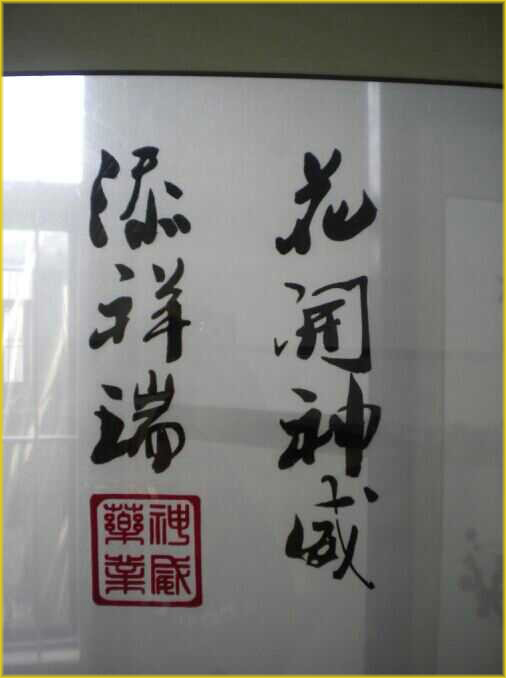 花開神威
添祥瑞
神威
藥業